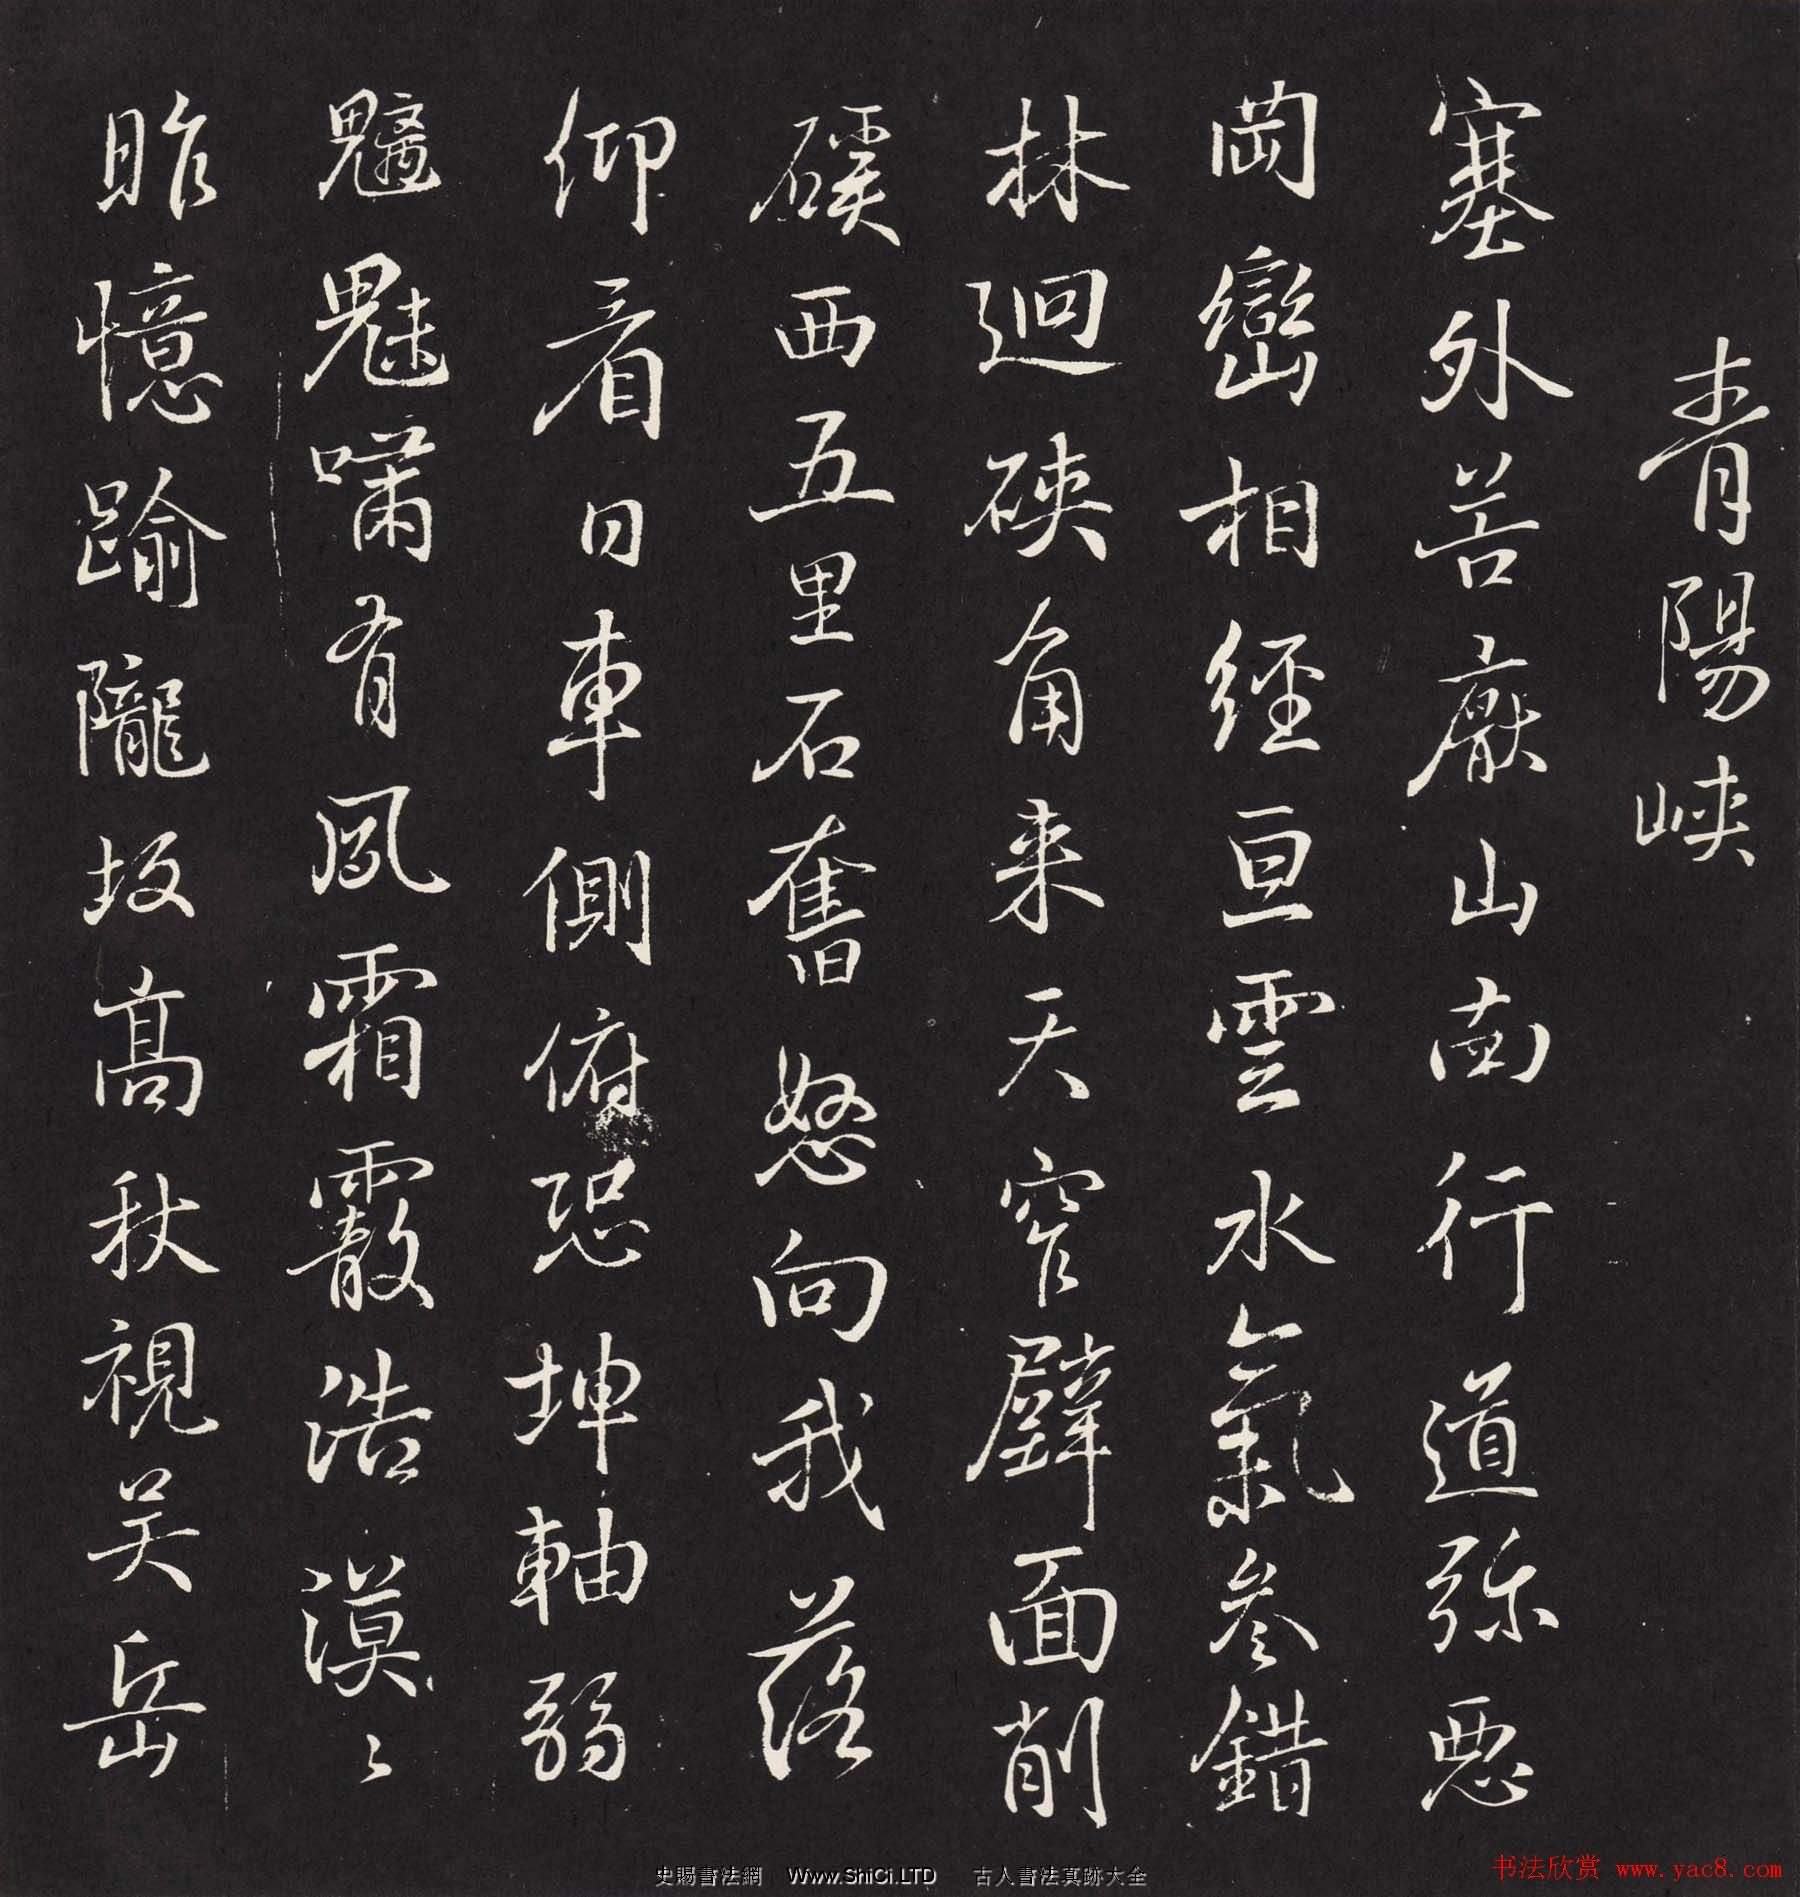 青陽峽
塞外苦厭山南行道弥惡
岡巒相經亘雲水氣參錯
林迴硖角来天窄壁面削
磎西五里石奮怒向我落
仰看日車側俯恐坤軸弱
魑魅嘯有風霜霰浩漠〻
昨憶踰隴坂高秋視吴岳
史賜書法網 Www.ShiCi.LTD 古人書法真跡大全
书法欣赏 www.yac8.com